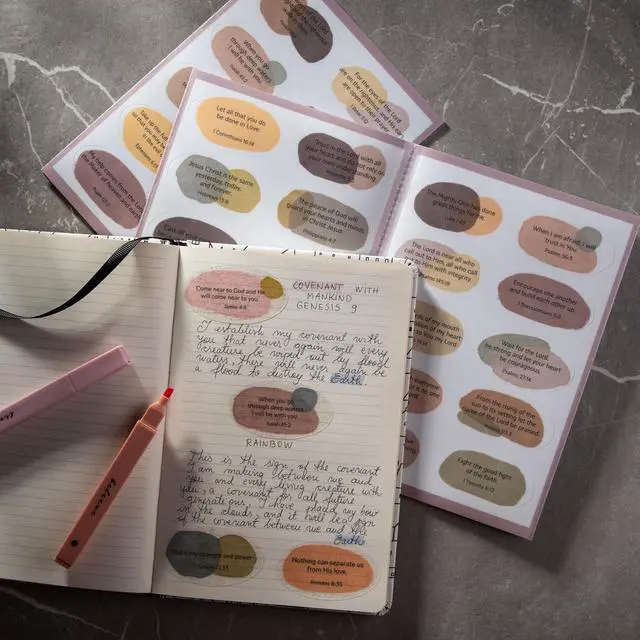 When you go
through deep waters
I will be with you.
For the eyes of the Lord
are on the righteous, and His ears
are open to their prayers
Let all that you do
be done in Love
1 Corinthians 16:14
Trust in the Lord with all
your heart and do not rely on
your own understanding
Jesus Christ is the same
yesterday, today,
and forever.
Hebrews 13:8
The peace of God will
guard your hearts and minds
in Christ Jesus.
Philippians 4:7
Cast all your
My help comes from the Lord,
the Maker of heaven and earth
The Mighty One has done
great things for me
Luke 1:49
When I am afraid, I will
trust in You.
Psalms 56:3
The Lord is near all who
call out to Him, all who call
out to Him with integrity.
Encourage one another
and build each other up.
1 Thessalonians 5:11
words of my mouth
of my heart
Wait for the Lord,
be strong and let your heart
be courageous.
Psalms 27:14
From the rising of the
sun to its setting let the
name of the Lord be praised.
Psalms 113:3
Fight the good fight
of the faith.
1 Timothy 6:12
Come near to God and He
will come near to you.
James 4:8
COVENANT WITH
MANKIND
GENESIS 9
I establish my covenant with
you that never again will every
creature be wiped out by flood
waters, there will never again be
a flood to destroy the Earth.
When you go
through deep waters
I will be with you.
Isaiah 43:2
RAINBOW
This is the sign of the covenant
I am making between me and
you and every living creature with
you, a covenant for all future
generations: I have placed my bow
in the clouds, and it will be a sign
of the covenant between me and the
Earth.
God is my strength and power
Nothing can separate us
from His love.
Romans 8:35